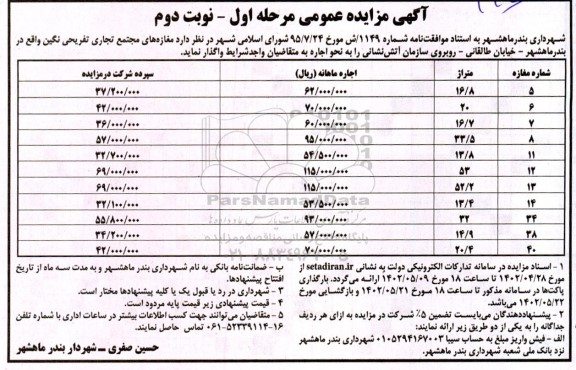 آگهی مزایده عمومی مرحله اول - نوبت دوم
شهرداری بندرماهشهر به استناد موافقت‌نامه شماره ۱۱۴۹/ش مورخ ۹۵/۷/۲۴ شورای اسلامی شهر در نظر دارد مغازه‌های مجتمع تجاری تفریحی نگین واقع در
بندرماهشهر - خیابان طالقانی - روبروی سازمان آتش‌نشانی را به نحو اجاره به متقاضیان واجدشرایط واگذار نماید.
شماره مغازه متراژ اجاره ماهانه (ریال) سپرده شرکت درمزایده
۵ ۱۶/۸ ۶۲/۰۰۰/۰۰۰ ۳۷/۲۰۰/۰۰۰
۶ ۲۰ ۷۰/۰۰۰/۰۰۰ ۴۲/۰۰۰/۰۰۰
۷ ۱۶/۷ ۶۰/۰۰۰/۰۰۰ ۳۶/۰۰۰/۰۰۰
۸ ۳۳/۵ ۹۵/۰۰۰/۰۰۰ ۵۷/۰۰۰/۰۰۰
۱۱ ۱۳/۸ ۵۴/۵۰۰/۰۰۰ ۳۲/۷۰۰/۰۰۰
۱۲ ۵۳ ۱۱۵/۰۰۰/۰۰۰ ۶۹/۰۰۰/۰۰۰
۱۳ ۵۲/۲ ۱۱۵/۰۰۰/۰۰۰ ۶۹/۰۰۰/۰۰۰
۱۴ ۱۳/۴ ۵۳/۵۰۰/۰۰۰ ۳۲/۱۰۰/۰۰۰
۳۴ ۳۲ ۹۳/۰۰۰/۰۰۰ ۵۵/۸۰۰/۰۰۰
۳۸ ۱۴/۹ ۵۷/۰۰۰/۰۰۰ ۳۴/۲۰۰/۰۰۰
۴۰ ۲۰/۴ ۷۰/۰۰۰/۰۰۰ ۴۲/۰۰۰/۰۰۰
۱ - اسناد مزایده در سامانه تدارکات الکترونیکی دولت به نشانی setadiran.ir از
مورخ ۱۴۰۲/۰۴/۲۸ تا ساعت ۱۸ مورخ ۱۴۰۲/۰۵/۰۹ ارائه می‌گردد. بارگذاری
پاکت‌ها در سامانه مذکور تا ساعت ۱۸ مورخ ۱۴۰۲/۰۵/۲۱ و بازگشایی مورخ
۱۴۰۲/۰۵/۲۲ می‌باشد.
۲ - پیشنهاددهندگان می‌بایست تضمین ۵٪ شرکت در مزایده به ازای هر ردیف
جداگانه را به یکی از دو طریق زیر ارائه نمایند:
الف - فیش واریز مبلغ به حساب سیبا ۰۱۰۵۲۹۴۱۶۷۰۰۳ شهرداری بندر ماهشهر
نزد بانک ملی شعبه شهرداری بندر ماهشهر.
ب - ضمانت‌نامه بانکی به نام شهرداری بندر ماهشهر و به مدت سه ماه از تاریخ
افتتاح پیشنهادها.
۳ - شهرداری در رد یا قبول یک یا کلیه پیشنهادها مختار است.
۴ - قیمت پیشنهادی زیر قیمت پایه مردود است.
۵ - متقاضیان می‌توانند جهت کسب اطلاعات بیشتر در ساعات اداری با شماره تلفن
۰۶۱-۵۲۳۳۹۱۱۴-۱۶ تماس حاصل نمایند.
حسین صفری - شهردار بندر ماهشهر
ParsNamadData